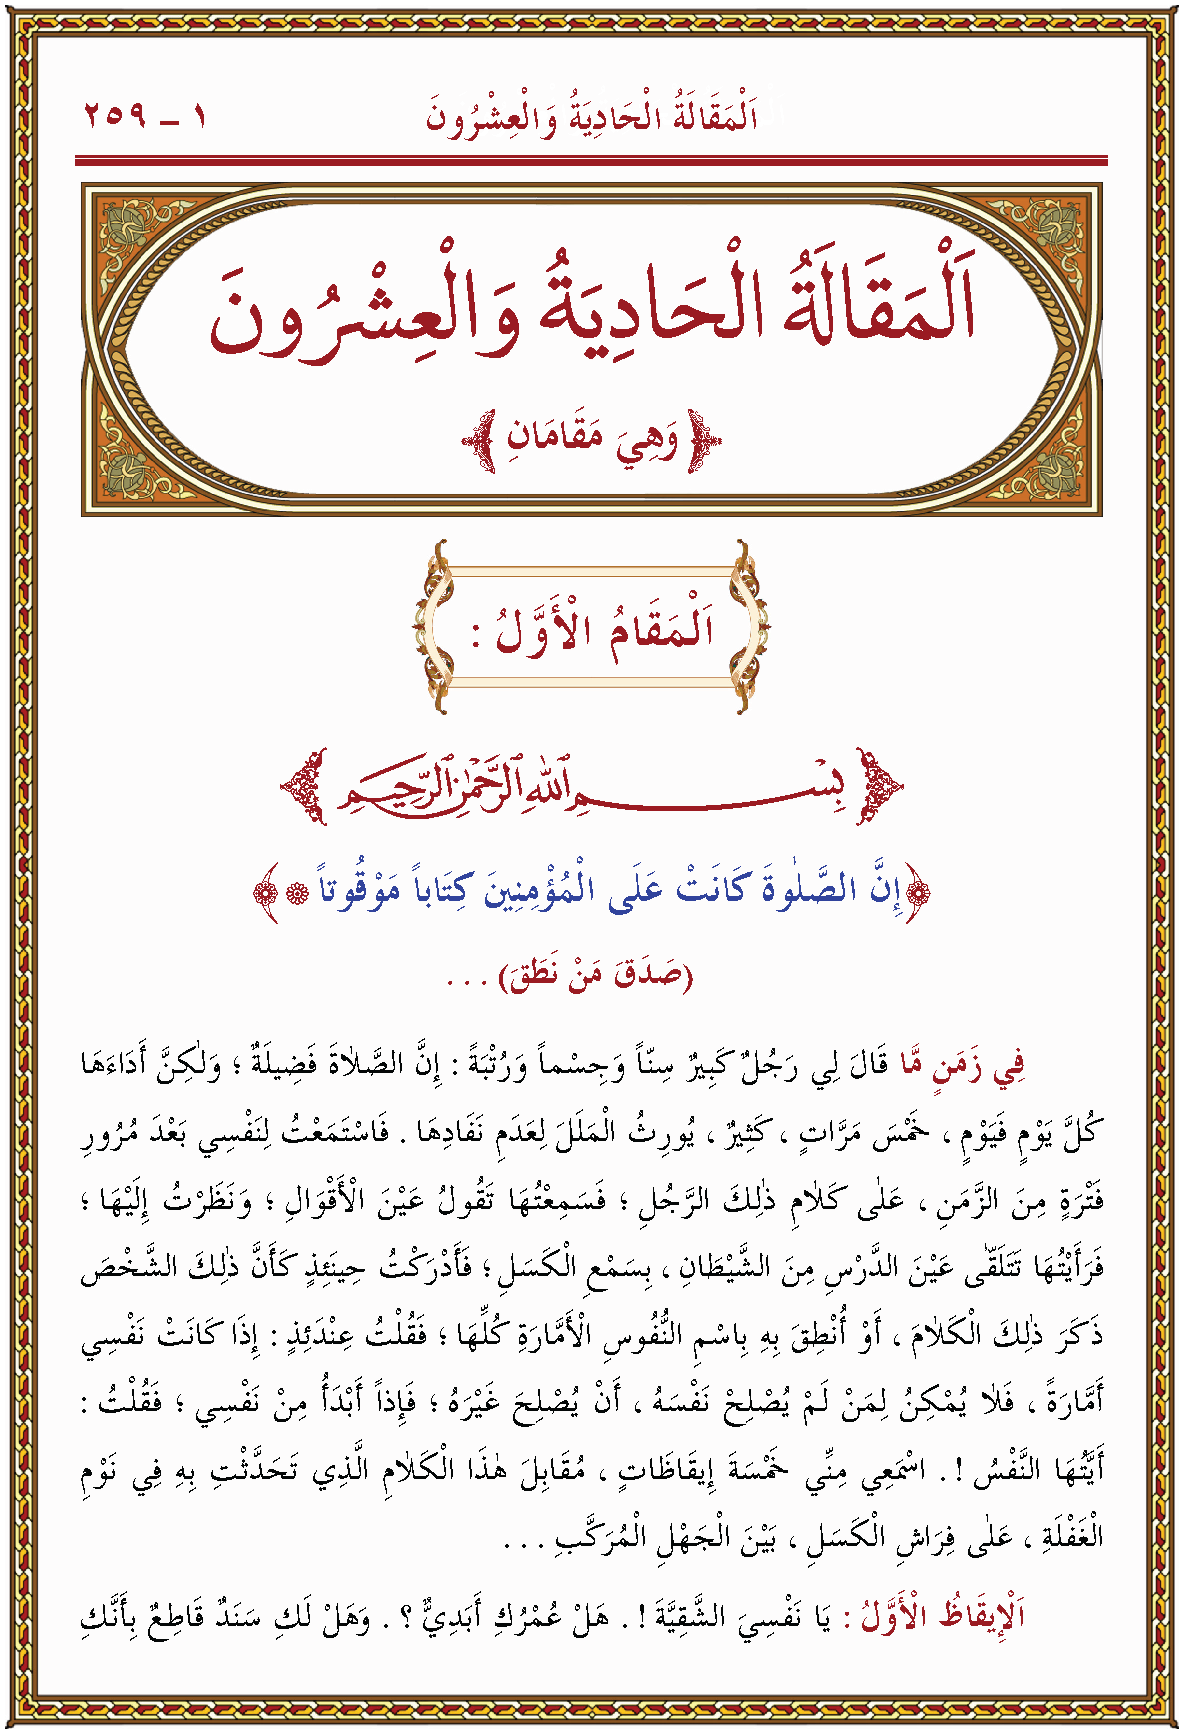 اَلْمَقَالَةُ الْحَادِيَةُ وَالْعِشْرُونَ ١ ـ ٢٥٩
اَلْمَقَالَةُ الْحَادِيَةُ وَالْعِشْرُونَ
وَهِيَ مَقَامَانِ
اَلْمَقَامُ الْأَوَّلُ :
بِسْمِ اللهِ الرَّحْمٰنِ الرَّحِيمِ
﴿إِنَّ الصَّلٰوةَ كَانَتْ عَلَى الْمُؤْمِنِينَ كِتَاباً مَوْقُوتاً ۞﴾
(صَدَقَ مَنْ نَطَقَ) . . .
فِي زَمَنٍ مَّا قَالَ لِي رَجُلٌ كَبِيرٌ سِنّاً وَجِسْماً وَرُتْبَةً : إِنَّ الصَّلَاةَ فَضِيلَةٌ ؛ وَلٰكِنَّ أَدَاءَهَا
كُلَّ يَوْمٍ فَيَوْمٍ ، خَمْسَ مَرَّاتٍ ، كَثِيرٌ ، يُورِثُ الْمَلَلَ لِعَدَمِ نَفَادِهَا . فَاسْتَمَعْتُ لِنَفْسِي بَعْدَ مُرُورِ
فَتْرَةٍ مِنَ الزَّمَنِ ، عَلٰى كَلَامِ ذٰلِكَ الرَّجُلِ ؛ فَسَمِعْتُهَا تَقُولُ عَيْنَ الْأَقْوَالِ ؛ وَنَظَرْتُ إِلَيْهَا ؛
فَرَأَيْتُهَا تَتَلَقَّى عَيْنَ الدَّرْسِ مِنَ الشَّيْطَانِ ، بِسَمْعِ الْكَسَلِ ؛ فَأَدْرَكْتُ حِينَئِذٍ كَأَنَّ ذٰلِكَ الشَّخْصَ
ذَكَرَ ذٰلِكَ الْكَلَامَ ، أَوْ أُنْطِقَ بِهِ بِاسْمِ النُّفُوسِ الْأَمَّارَةِ كُلِّهَا ؛ فَقُلْتُ عِنْدَئِذٍ : إِذَا كَانَتْ نَفْسِي
أَمَّارَةً ، فَلَا يُمْكِنُ لِمَنْ لَمْ يُصْلِحْ نَفْسَهُ ، أَنْ يُصْلِحَ غَيْرَهُ ؛ فَإِذاً أَبْدَأُ مِنْ نَفْسِي ؛ فَقُلْتُ :
أَيَّتُهَا النَّفْسُ ! . اسْمَعِي مِنِّي خَمْسَةَ إِيقَاظَاتٍ ، مُقَابِلَ هٰذَا الْكَلَامِ الَّذِي تَحَدَّثْتِ بِهِ فِي نَوْمِ
الْغَفْلَةِ ، عَلٰى فِرَاشِ الْكَسَلِ ، بَيْنَ الْجَهْلِ الْمُرَكَّبِ . . .
اَلْإِيقَاظُ الْأَوَّلُ : يَا نَفْسِيَ الشَّقِيَّةَ ! . هَلْ عُمْرُكِ أَبَدِيٌّ ؟ . وَهَلْ لَكِ سَنَدٌ قَاطِعٌ بِأَنَّكِ